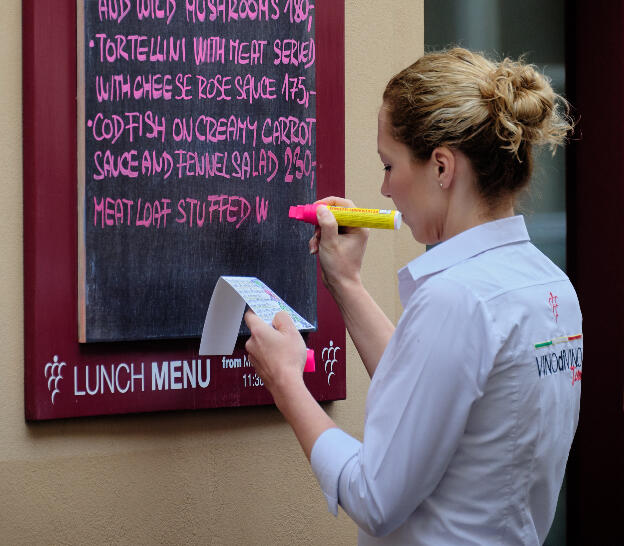 AND WILD MUSHROOMS 180,-
• TORTELLINI WITH MEAT SERVED
WITH CHEESE ROSE SAUCE 175,-
• CODFISH ON CREAMY CARROT
SAUCE AND FENNEL SALAD 230,-
MEAT LOAF STUFFED W
LUNCH MENU
from M
11:30
VINOdiVINO